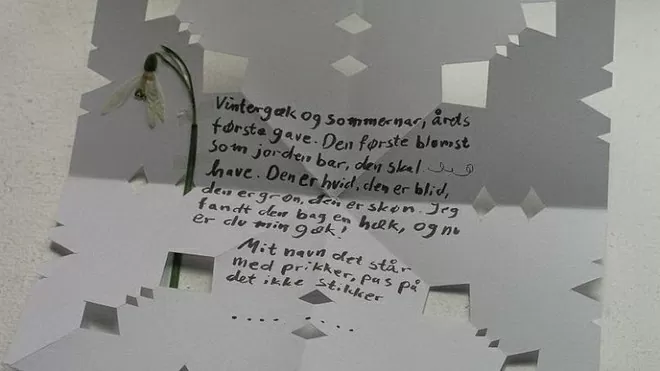 Vintergæk og sommernar, årets
første gave. Den første blomst
som jorden bar, den skal
have. Den er hvid, den er blid,
den er grøn, den er skøn. Jeg
fandt den bag en hæk, og nu
er du min gæk!
Mit navn det står
med prikker, pas på
det ikke stikker
..... .. ....